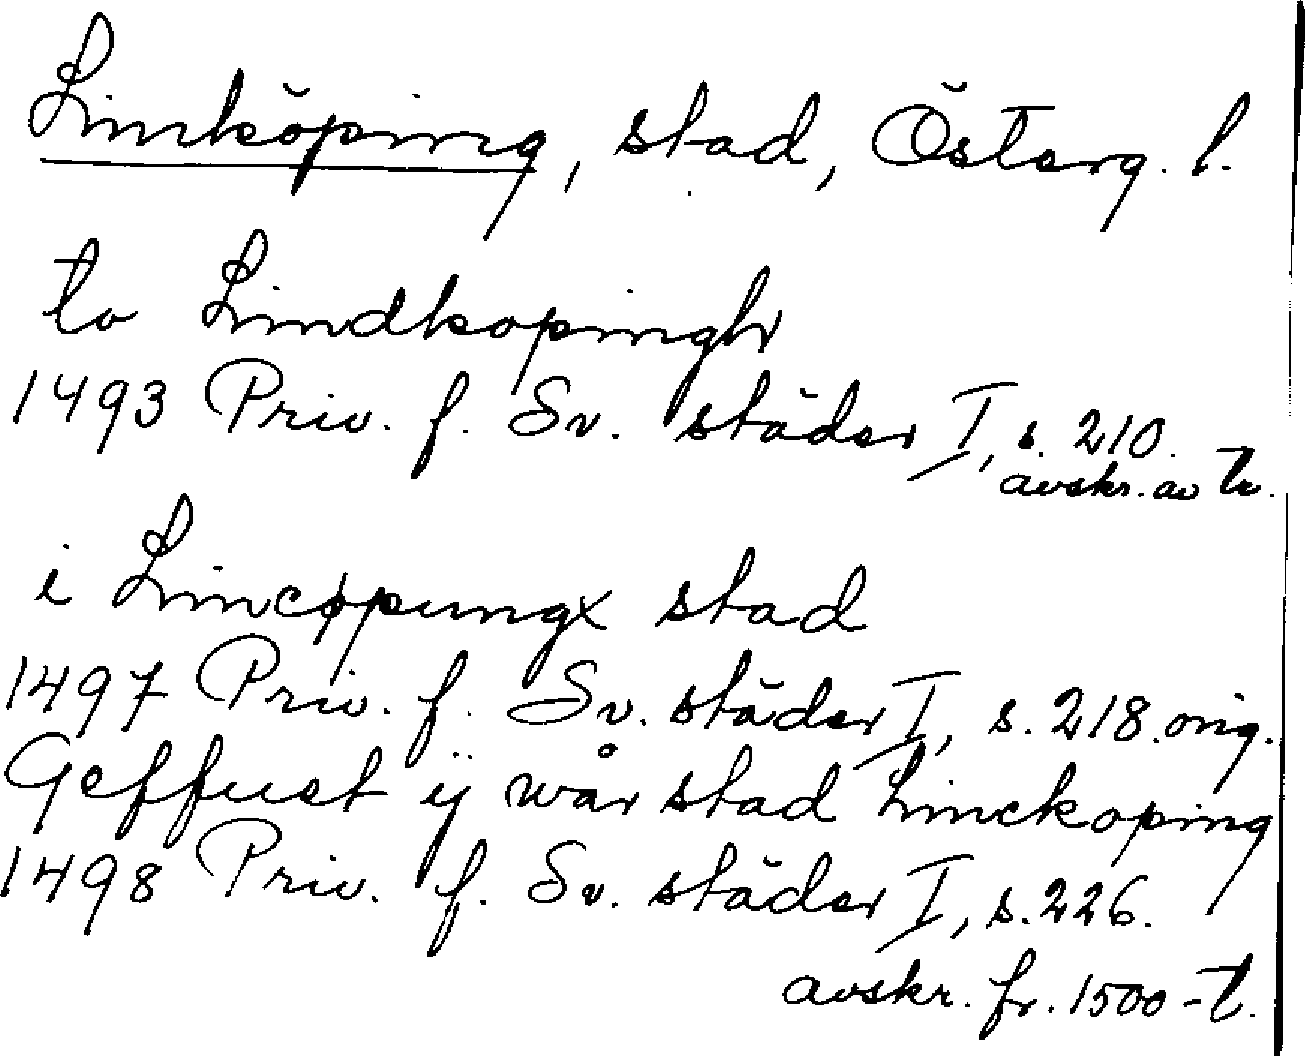 Linköping, stad, Österg. l.
to Lindkopingh
1493 Priv. f. Sv. städer I, s. 210.
avskr. av tr.
i Lincøpungx stad
1497 Priv. f. Sv. städer I, s. 218. orig.
Geffuet ÿ wår stad Linckoping
1498 Priv. f. Sv. städer I, s. 226.
avskr. fr. 1500-t.